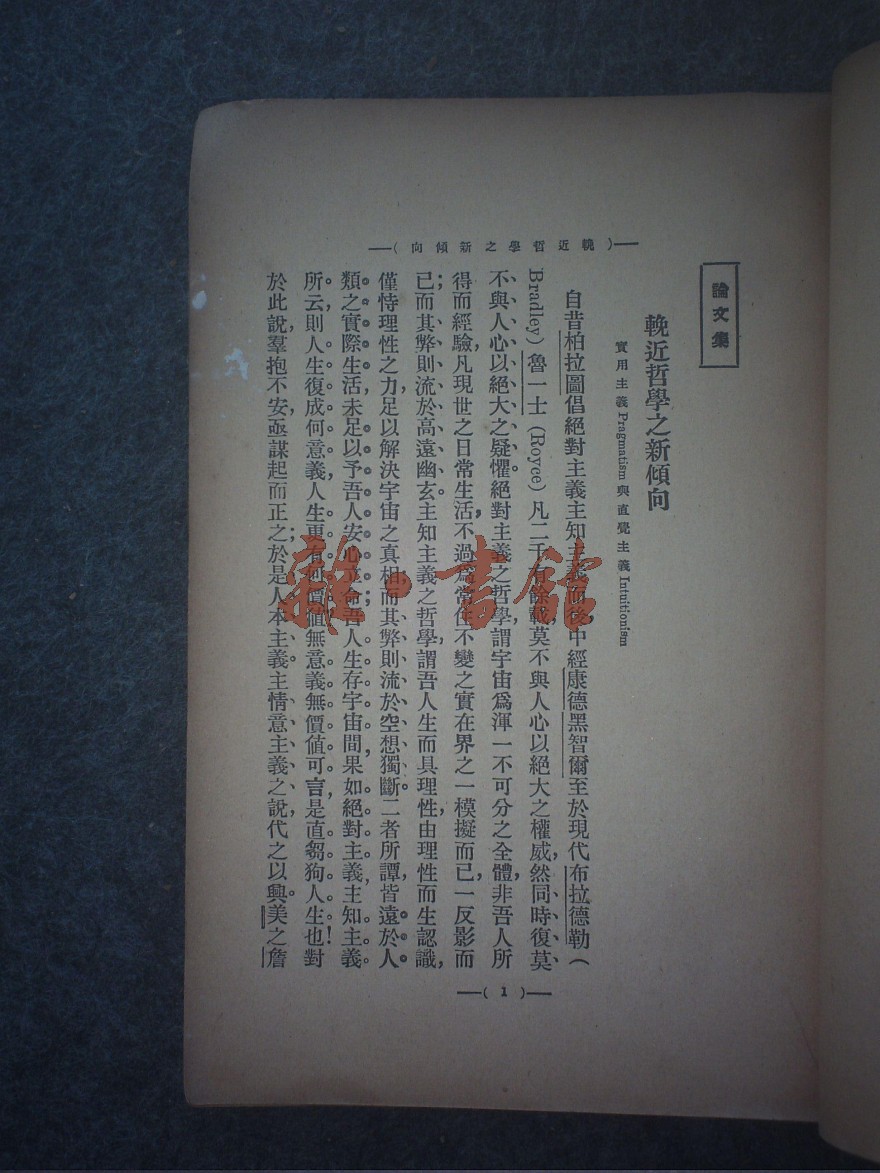 論文集
輓近哲學之新傾向
實用主義 Pragmatism 與直覺主義 Intuitionism
——(輓近哲學之新傾向)——
自昔柏拉圖倡絕對主義主知主義而後，中經康德黑智爾至於現代布拉德勒（
Bradley）魯一士（Royee）凡二千有餘載，莫不與人心以絕大之權威，然同時復莫、
不、與人心以絕大之疑懼。絕對主義之哲學，謂宇宙爲渾一不可分之全體，非吾人所
得而經驗，凡現世之日常生活，不過爲常住不變之實在界之一模擬而已，一反影而
已；而其弊則流於高遠幽玄。主知主義之哲學，謂吾人生而具理性，由理性而生認識，
僅恃理性之力，足以解決宇宙之真相；而其弊則流於空想獨斷。二者所譚，皆遠於人
類之實際生活，未足以予吾人安心立命。吾人生存宇宙間，果如絕對主義，主知主義
所云，則人生復成何意義，人生更有何價値。無意義無價値可言，是直芻狗人生也！對
於此說，羣抱不安，亟謀起而正之；於是人本主義、主情意主義之說，代之以興。美之詹
——( 1 )——
雜·書館